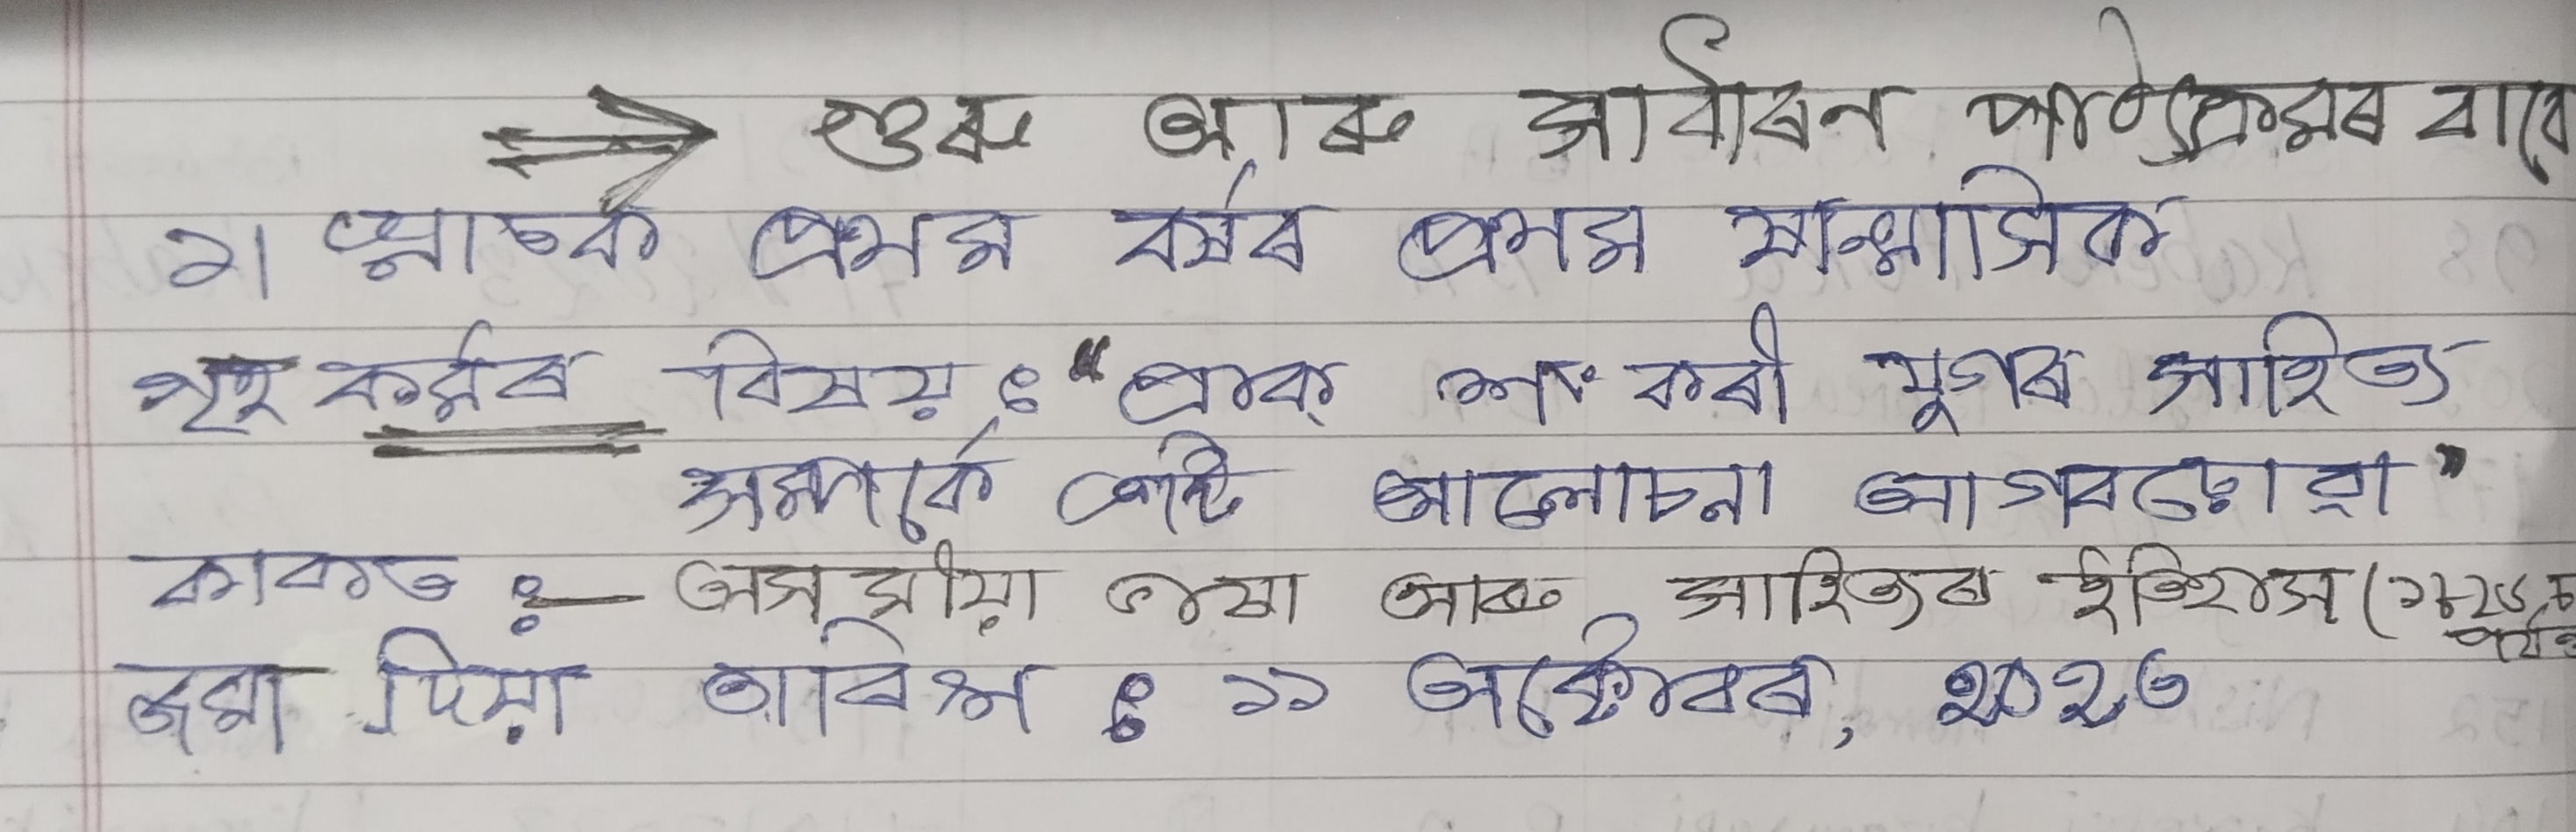 ⇒ গুৰু আৰু সাধাৰন পাঠ্যক্ৰমৰ বাবে
২। স্নাতক প্ৰথম বৰ্ষৰ প্ৰথম ষান্মাসিক
গৃহ কৰ্মৰ বিষয় ঃ “প্ৰাক্ শংকৰী যুগৰ সাহিত্য
সম্পৰ্কে এটি আলোচনা আগবঢ়োৱা”
কাকত ঃ— অসমীয়া ভাষা আৰু সাহিত্যৰ ইতিহাস (১৮২৬ চ
পৰ্যন্ত
জমা দিয়া তাৰিখ ঃ ১১ অক্টোবৰ, ২০২৩